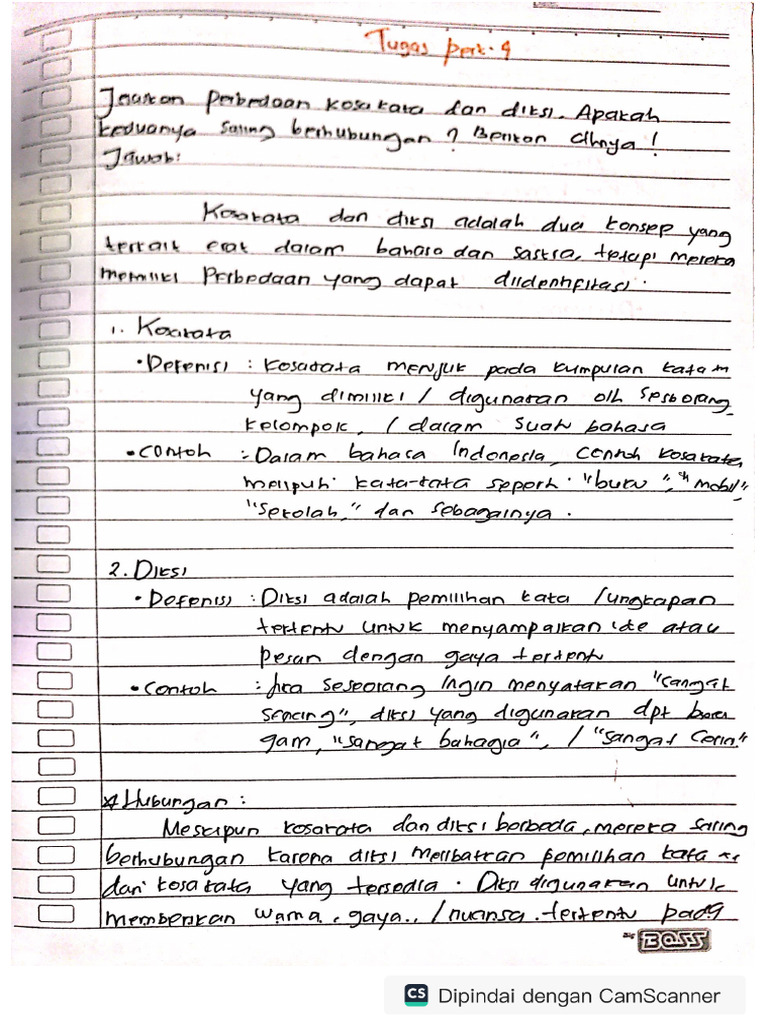 Tugas pert. 4
Jelaskan Perbedaan kosakata dan diksi. Apakah
keduanya saling berhubungan ? Berikan clhnya !
Jawab:
Kosakata dan diksi adalah dua konsep yang
terkait erat dalam bahasa dan sastra, tetapi mereka
memiliki Perbedaan yang dapat diidentifikasi.
1. Kosakata
• Defenisi : kosakata menujuk pada kumpulan kata
yang dimiliki / digunakan olh seseorang,
kelompok, / dalam suatu bahasa
• Contoh : Dalam bahasa Indonesia, contoh kosakata
meliputi kata-kata seperti "buku", "mobil",
"sekolah," dan sebagainya.
2. Diksi
• Defenisi : Diksi adalah pemilihan kata /ungkapan
tertentu untuk menyampaikan ide atau
pesan dengan gaya tertentu
• Contoh : Jika seseorang ingin menyatakan "sangat
senang", diksi yang digunakan dpt bera
gam, "sangat bahagia", / "sangat Ceria"
* Hubungan :
Meskipun kosakata dan diksi berbeda, mereka saling
berhubungan karena diksi melibatkan pemilihan kata
dari kosakata yang tersedia. Diksi digunakan untuk
memberikan warna, gaya, /nuansa tertentu pada
BOSS
CS Dipindai dengan CamScanner